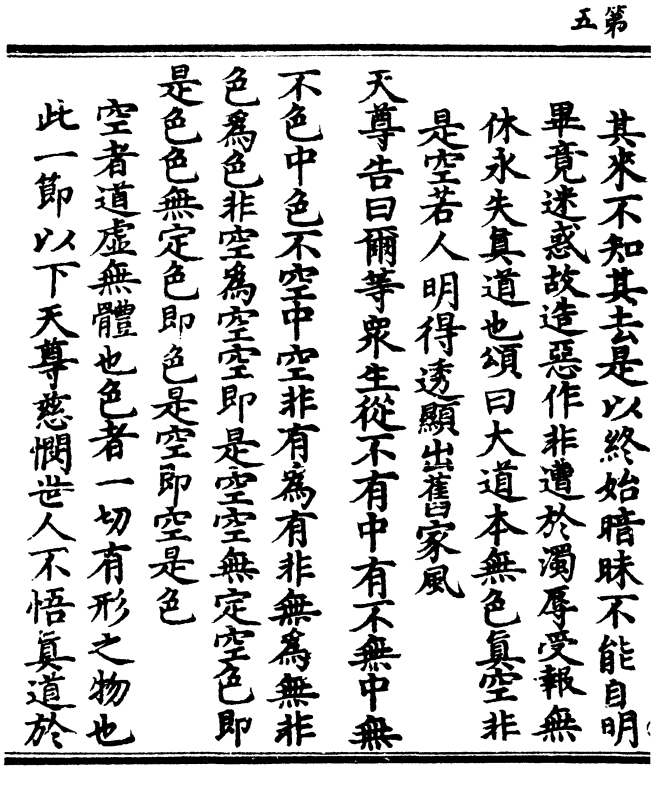 第五
其來不知其去是以終始暗昧不能自明
畢竟迷惑故造惡作非遭於濁辱受報無
休永失眞道也頌曰大道本無色眞空非
是空若人明得透顯出舊家風
天尊告曰爾等衆生從不有中有不無中無
不色中色不空中空非有爲有非無爲無非
色爲色非空爲空空即是空空無定空色即
是色色無定色即色是空即空是色
空者道虛無體也色者一切有形之物也
此一節以下天尊慈憫世人不悟眞道於